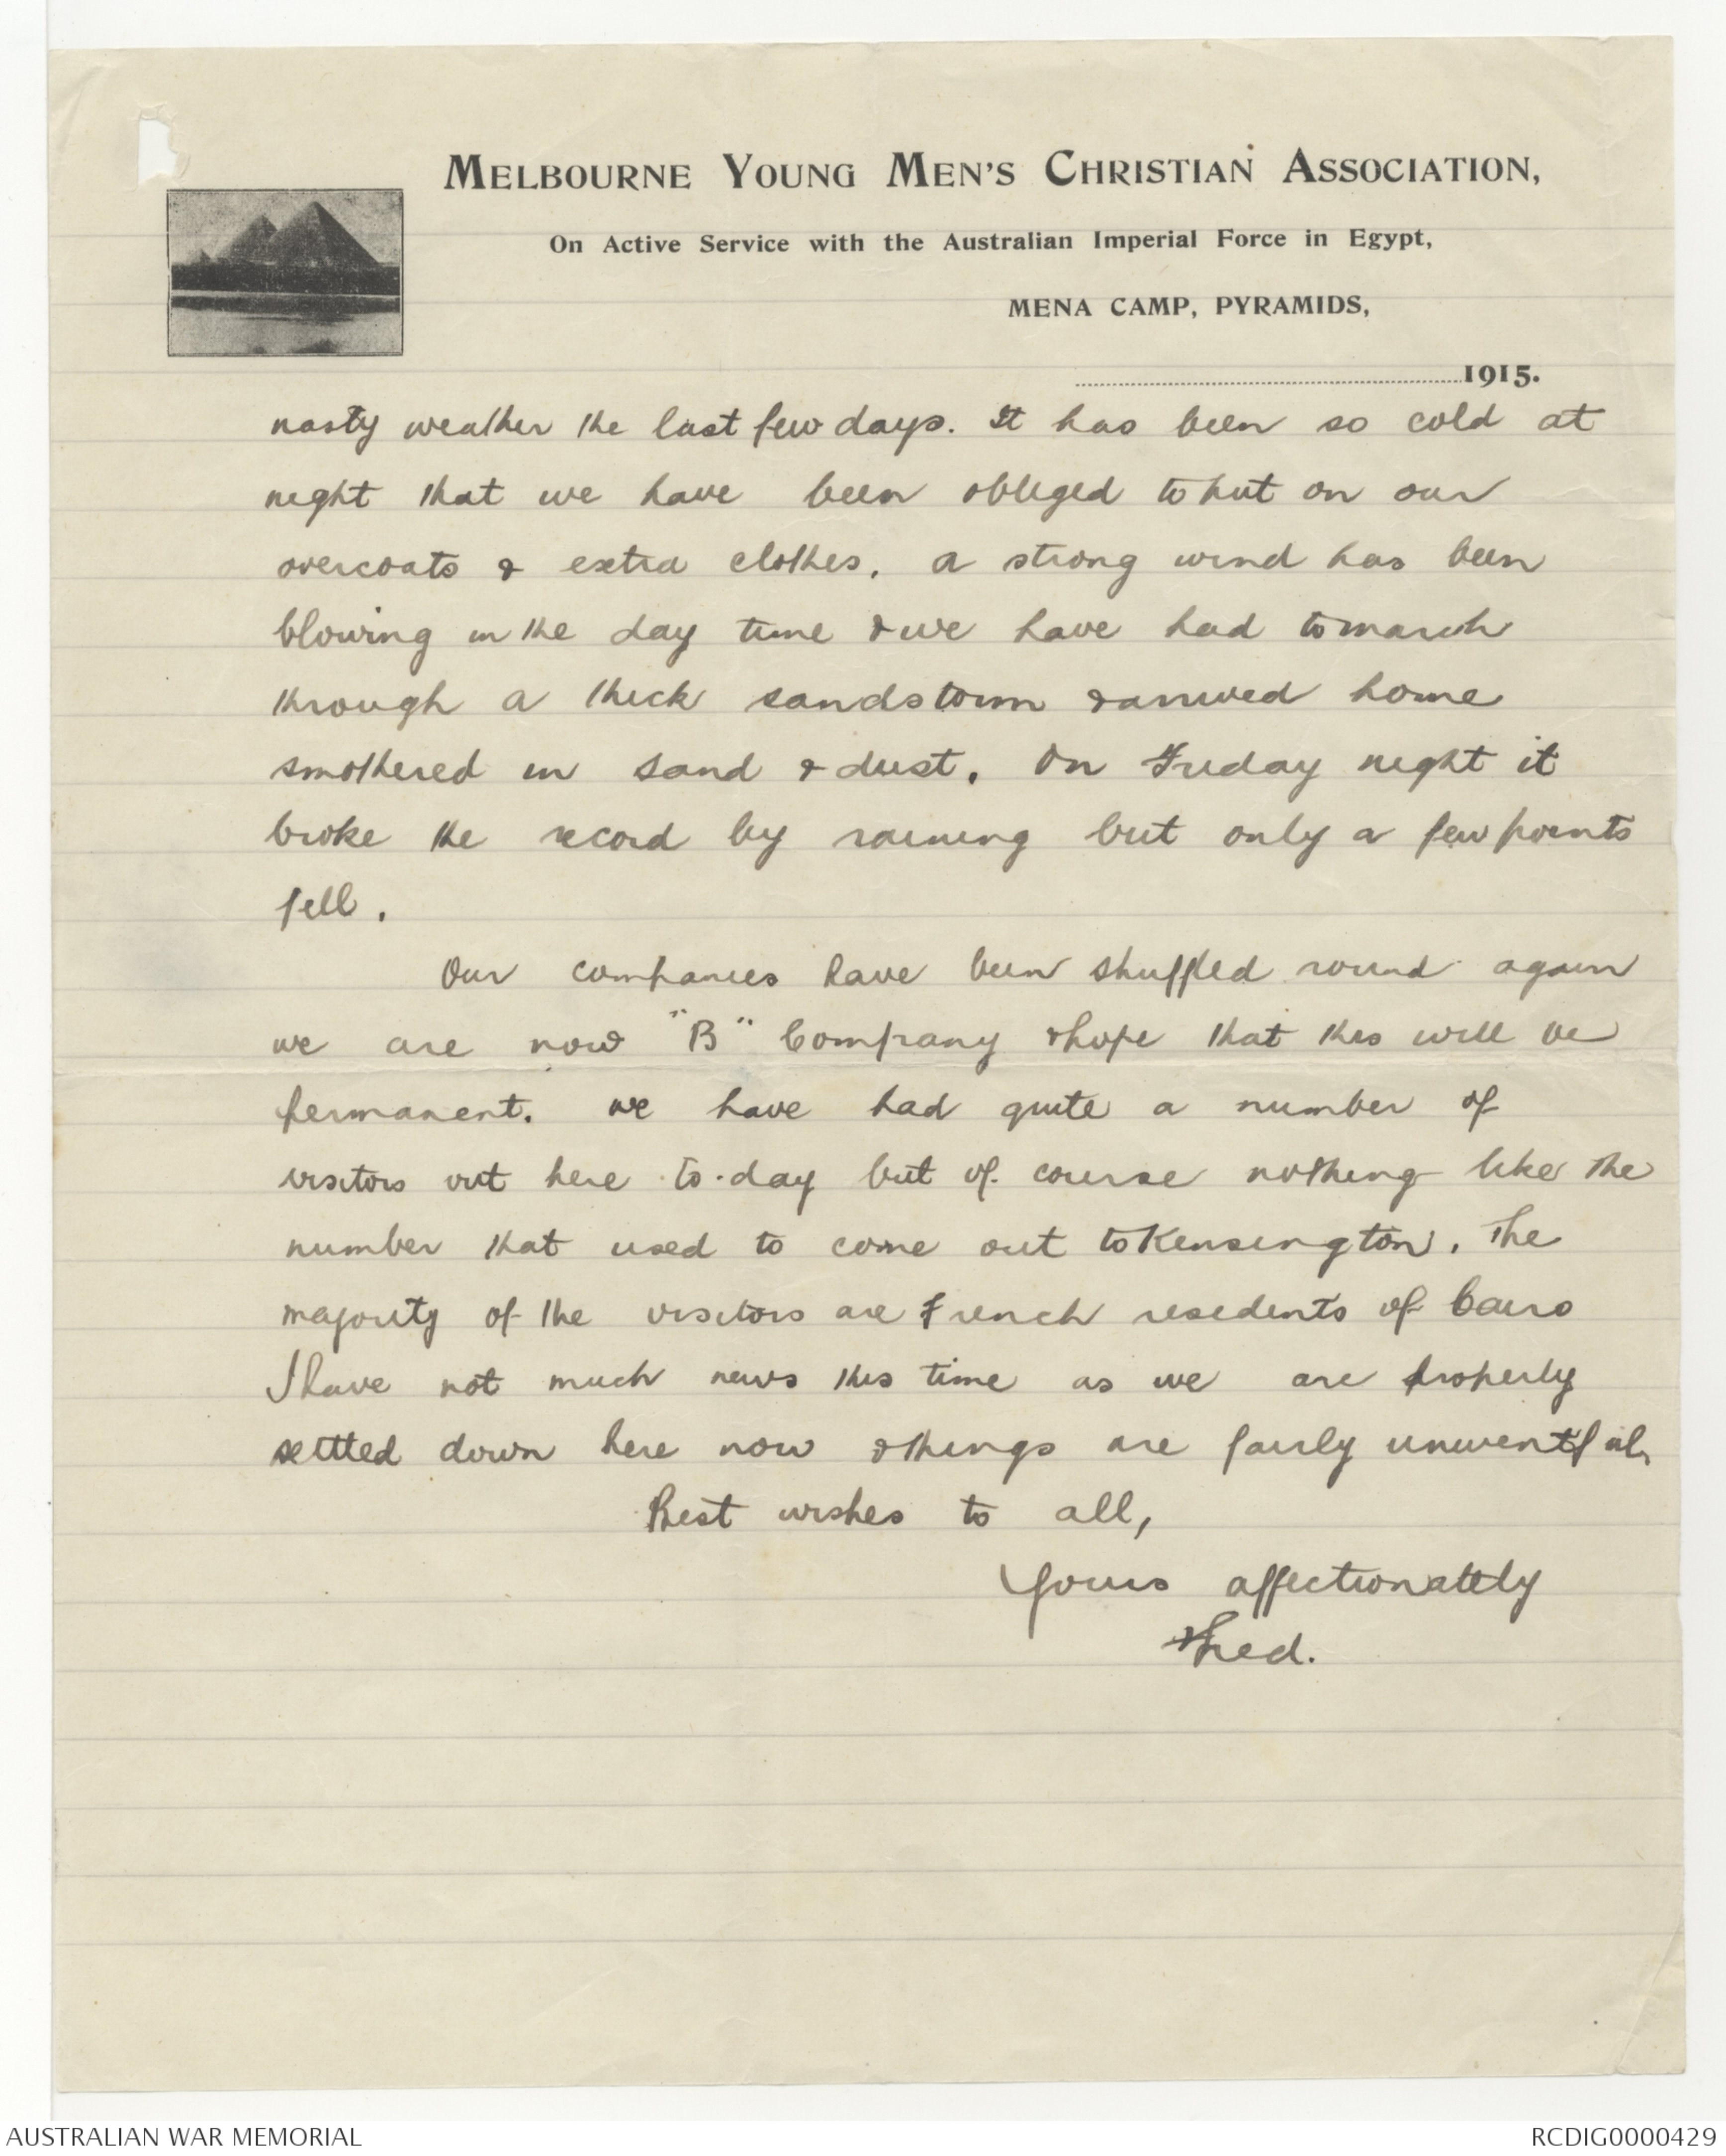 MELBOURNE YOUNG MEN'S CHRISTIAN ASSOCIATION,
On Active Service with the Australian Imperial Force in Egypt,
MENA CAMP, PYRAMIDS,
1915.
nasty weather the last few days. It has been so cold at
night that we have been obliged to put on our
overcoats & extra clothes. A strong wind has been
blowing in the day time & we have had to march
through a thick sandstorm & arrived home
smothered in sand & dust. On Friday night it
broke the record by raining but only a few points
fell.
Our companies have been shuffled round again
we are now "B" Company & hope that this will be
permanent. We have had quite a number of
visitors out here to-day but of course nothing like the
number that used to come out to Kensington. The
majority of the visitors are French residents of Cairo
I have not much news this time as we are properly
settled down here now & things are fairly uneventful.
Best wishes to all,
Yours affectionately
Fred.
AUSTRALIAN WAR MEMORIAL
RCDIG0000429